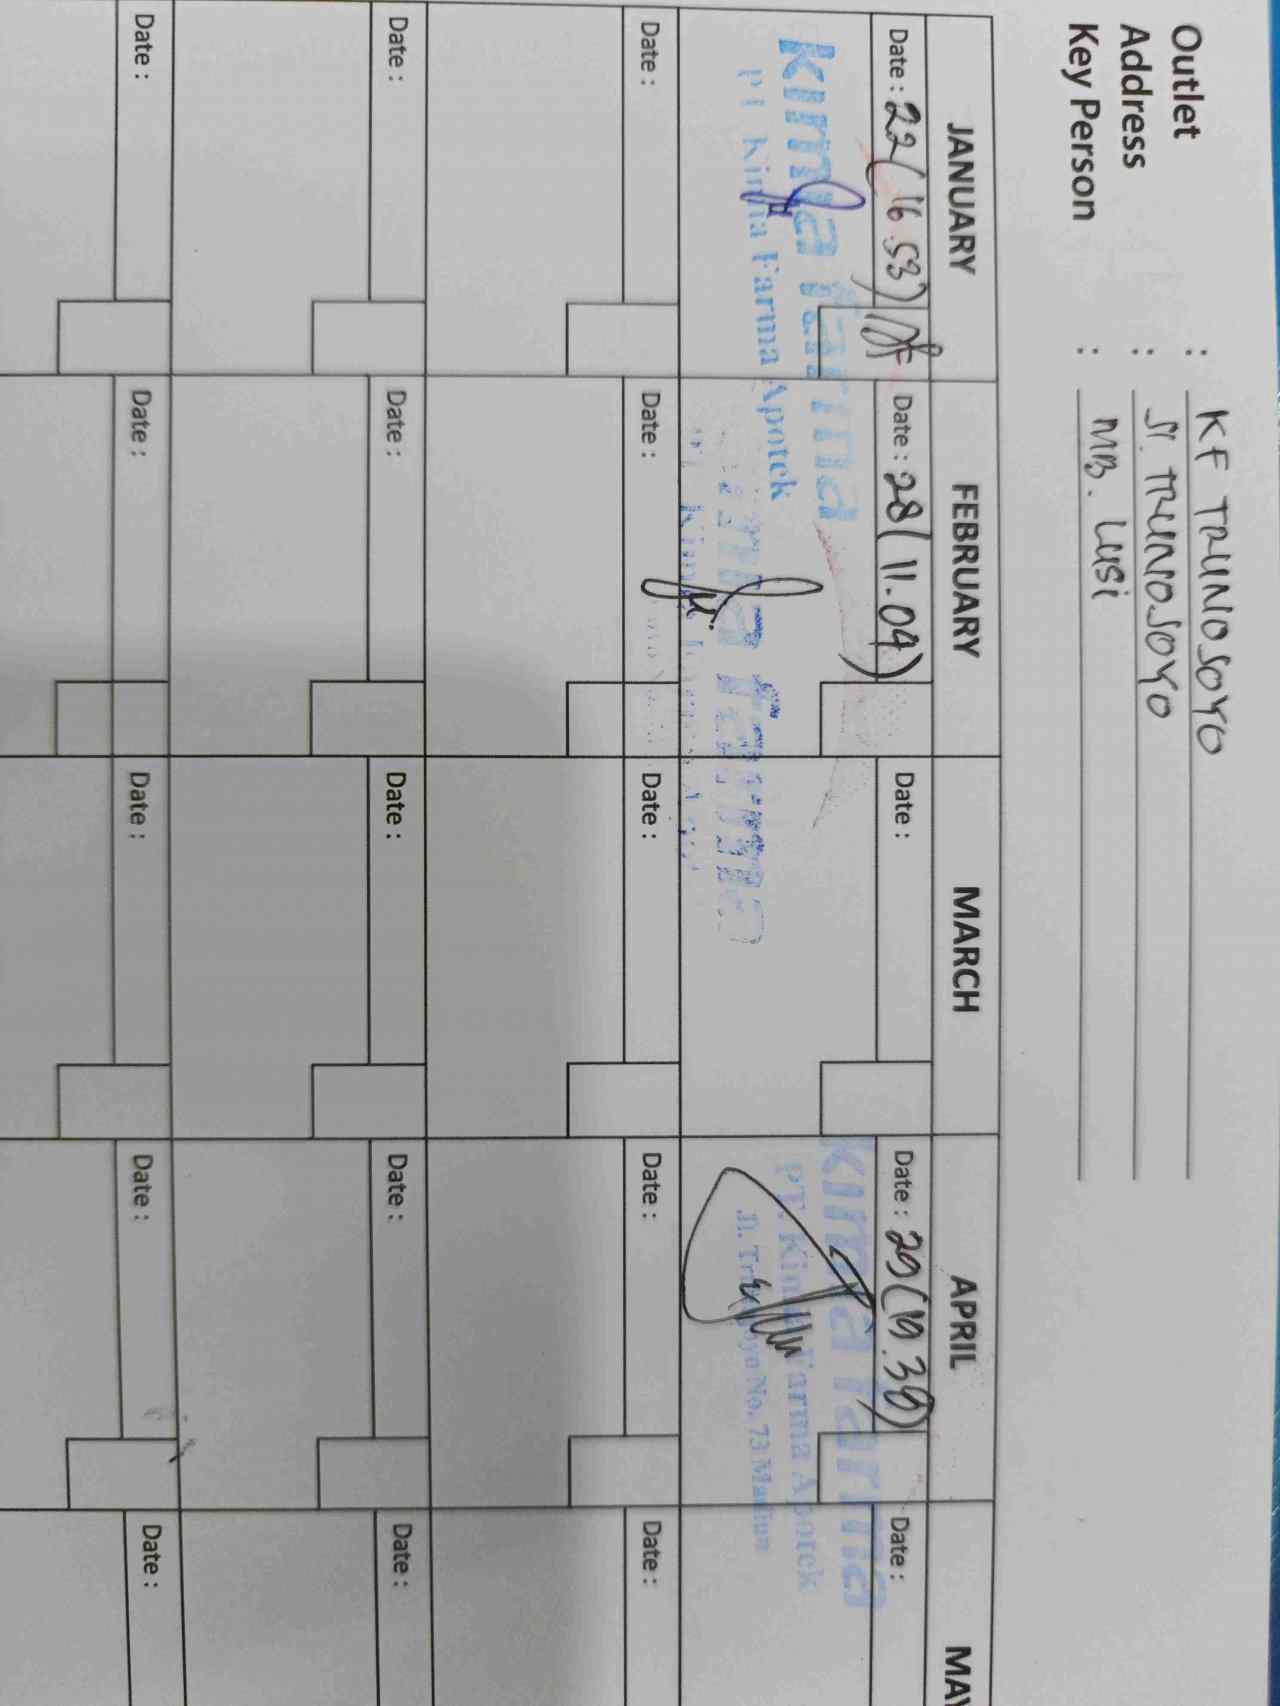 Outlet : KF TRUNOJOYO
Address : Jl. TRUNOJOYO
Key Person : MB. Lusi
JANUARY FEBRUARY MARCH APRIL MAY
Date : 22 (16.53) Date : 28 (11.04) Date : Date : 29 (19.39) Date :
kimia farma
PT Kimia Farma Apotek
kimia farma
kimia farma
PT. Kimia Farma Apotek
Jl. Trunojoyo No. 73 Madiun
Date : Date : Date : Date : Date :
Date : Date : Date : Date : Date :
Date : Date : Date : Date : Date :